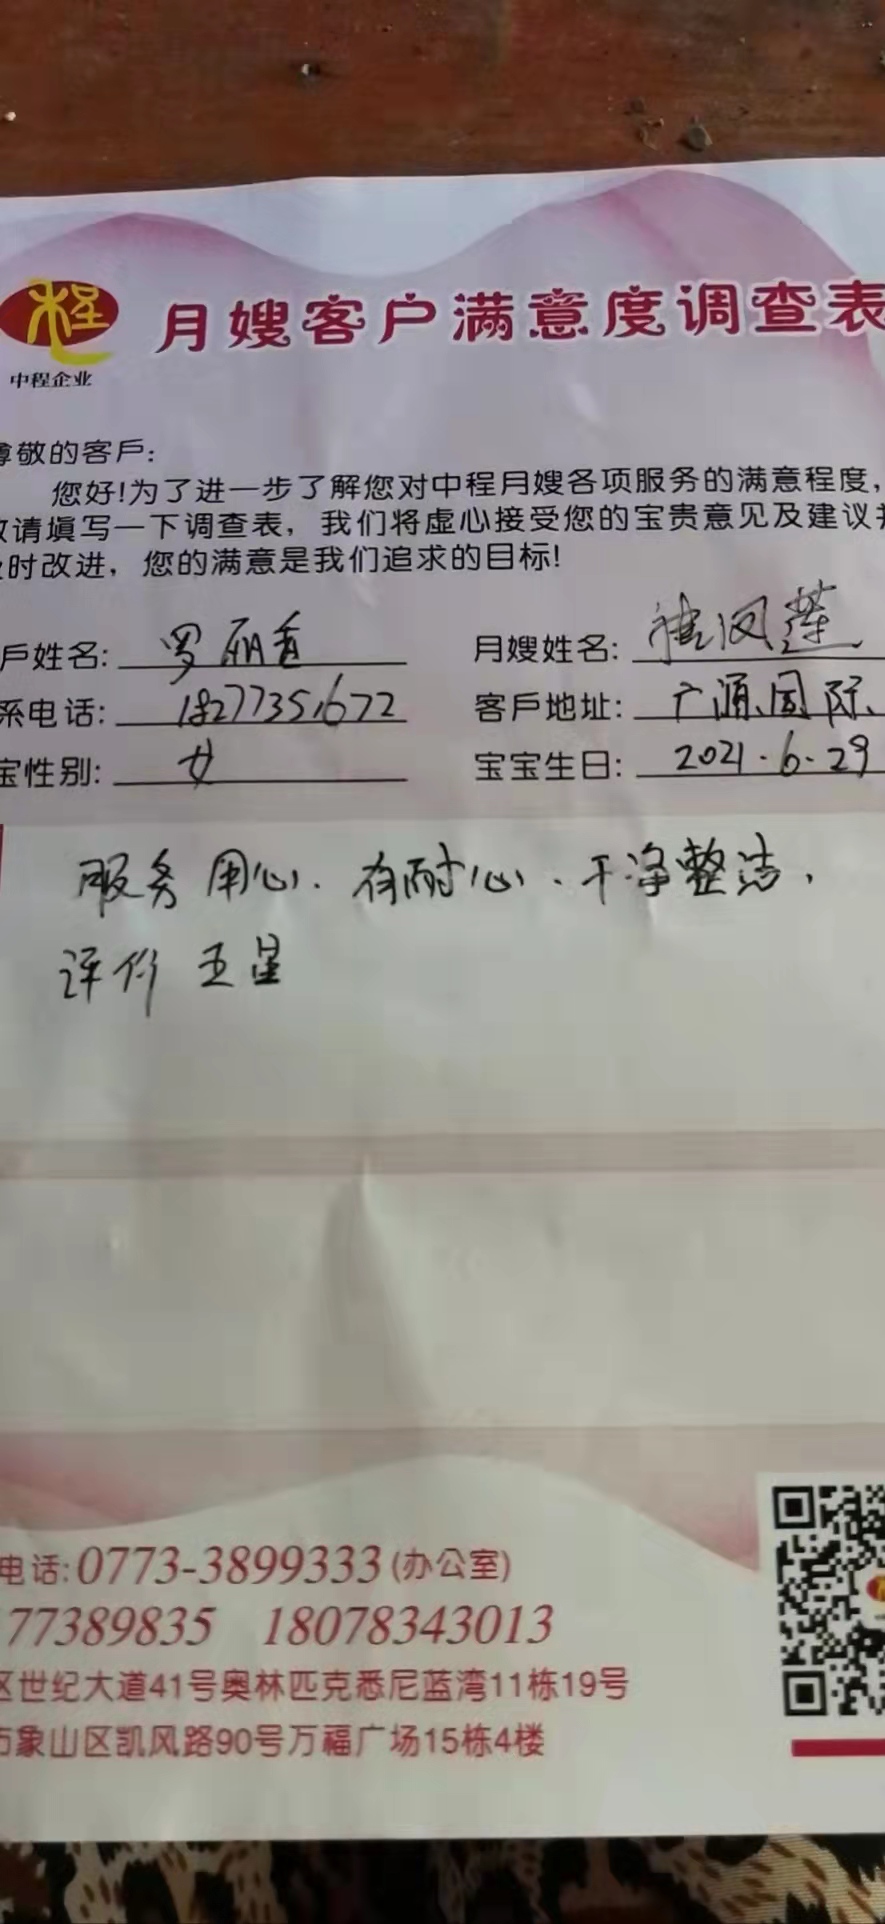 程
月嫂客户满意度调查表
中程企业
尊敬的客户:
您好!为了进一步了解您对中程月嫂各项服务的满意程度,
请填写一下调查表,我们将虚心接受您的宝贵意见及建议
时改进,您的满意是我们追求的目标!
户姓名: 罗丽香 月嫂姓名: 凤莲
系电话: 18277351672 客户地址: 广源国际
宝性别: 女 宝宝生日: 2021.6.29
服务用心、有耐心、干净整洁,
评价五星
电话:0773-3899333(办公室)
77389835 18078343013
区世纪大道41号奥林匹克悉尼蓝湾11栋19号
市象山区凯风路90号万福广场15栋4楼